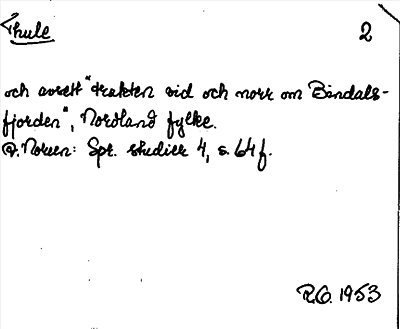 Thule 2
och avsett "trakten vid och norr om Bindals-
fjorden", Nordland fylke.
A. Noreen: Spr. studier 4, s. 64 f.
R.O. 1953